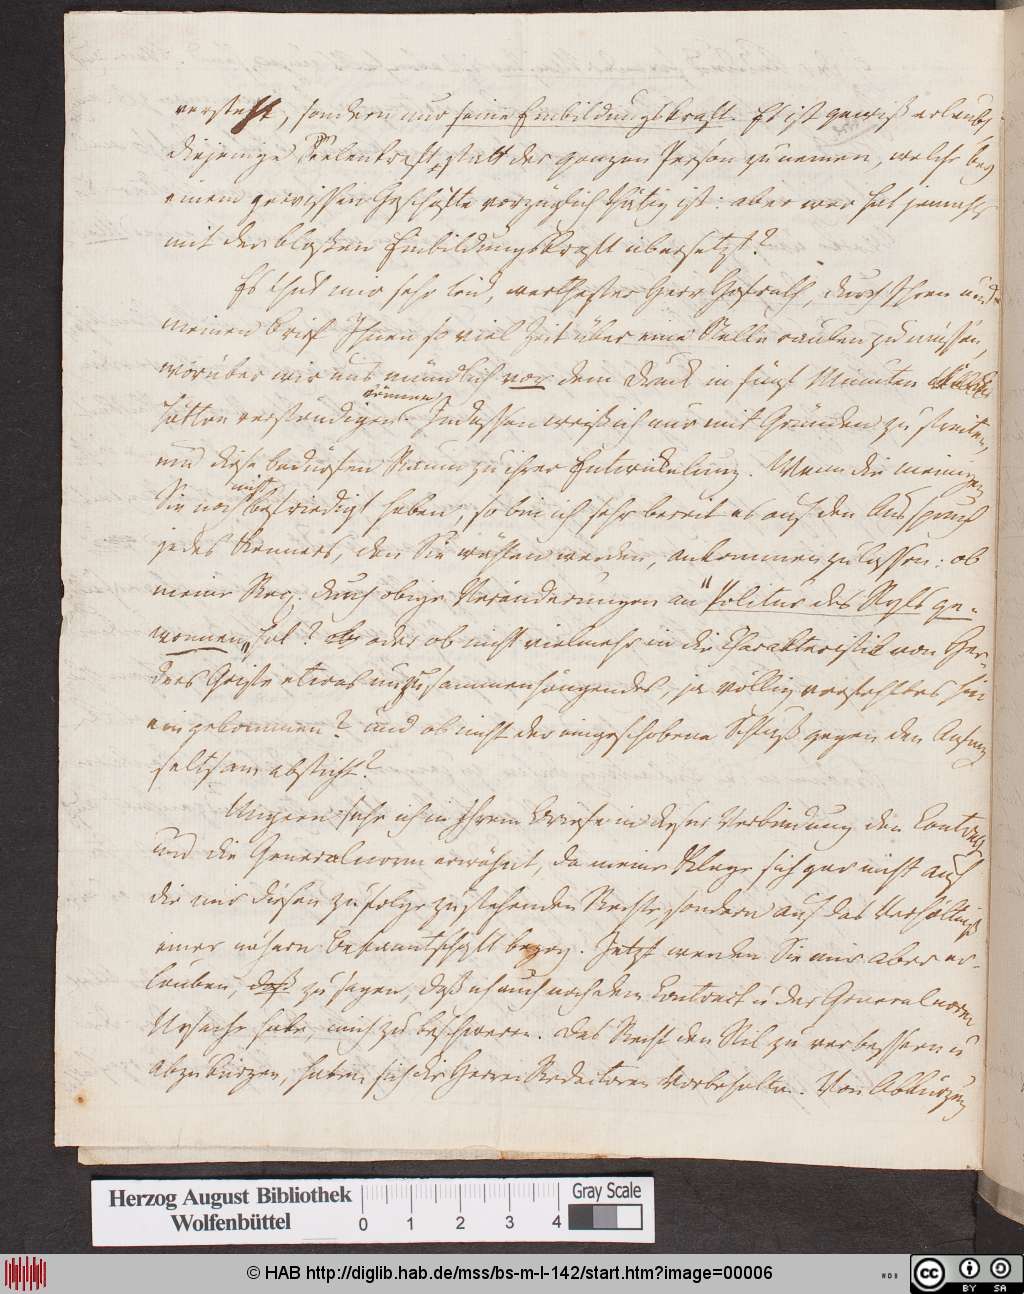 versteht, sondern nur seine Einbildungskraft. Es ist gewiß erlaubt,
diejenige Seelenkraft statt der ganzen Person zu nennen, welche bey
einem gewissen Geschäfte vorzüglich thätig ist: aber wer hat jemahls
mit der bloßen Einbildungskraft übersetzt?
Es thut mir sehr leid, werthester Herr Hofrath, durch Ihren und
meinen Brief Ihnen so viel Zeit über eine Stelle rauben zu müssen,
worüber wir uns mündlich vor dem Druck in fünf Minuten
hätten verständigen können. Indessen weiß ich nur mit Gründen zu streiten,
und diese bedürfen Raum zu ihrer Entwickelung. Wenn die meinigen
Sie noch nicht befriedigt haben, so bin ich sehr bereit es auf den Ausspruch
jedes Kenners, den Sie wählen werden, ankommen zu lassen: ob
meine Rec. durch obige Veränderungen an "Politur des Styls ge-
wonnen" hat? oder ob nicht vielmehr in die Charakteristik von Her-
ders Geiste etwas unzusammenhängendes, ja völlig verfehltes hin
eingekommen? und ob nicht der eingeschobene Schluß gegen den Anfang
seltsam absticht?
Ungern sehe ich in Ihrem Briefe in dieser Verbindung den Contract
und die Generalnorm erwähnt, da meine Klage sich gar nicht auf
die mir diesen zufolge zustehenden Rechte, sondern auf das Verhältniß
einer nähern Bekanntschaft bezog. Jetzt werden Sie mir aber er-
lauben, daß zu sagen, daß ich auch nach dem Contract u der Generalnorm
Ursache habe, mich zu beschweren. Das Recht den Stil zu verbessern u
abzukürzen, haben sich die Herren Redactoren vorbehalten. Von Abkürzung
Herzog August Bibliothek
Wolfenbüttel
0 1 2 3 4
Gray Scale
© HAB http://diglib.hab.de/mss/bs-m-l-142/start.htm?image=00006
WDB
cc BY SA